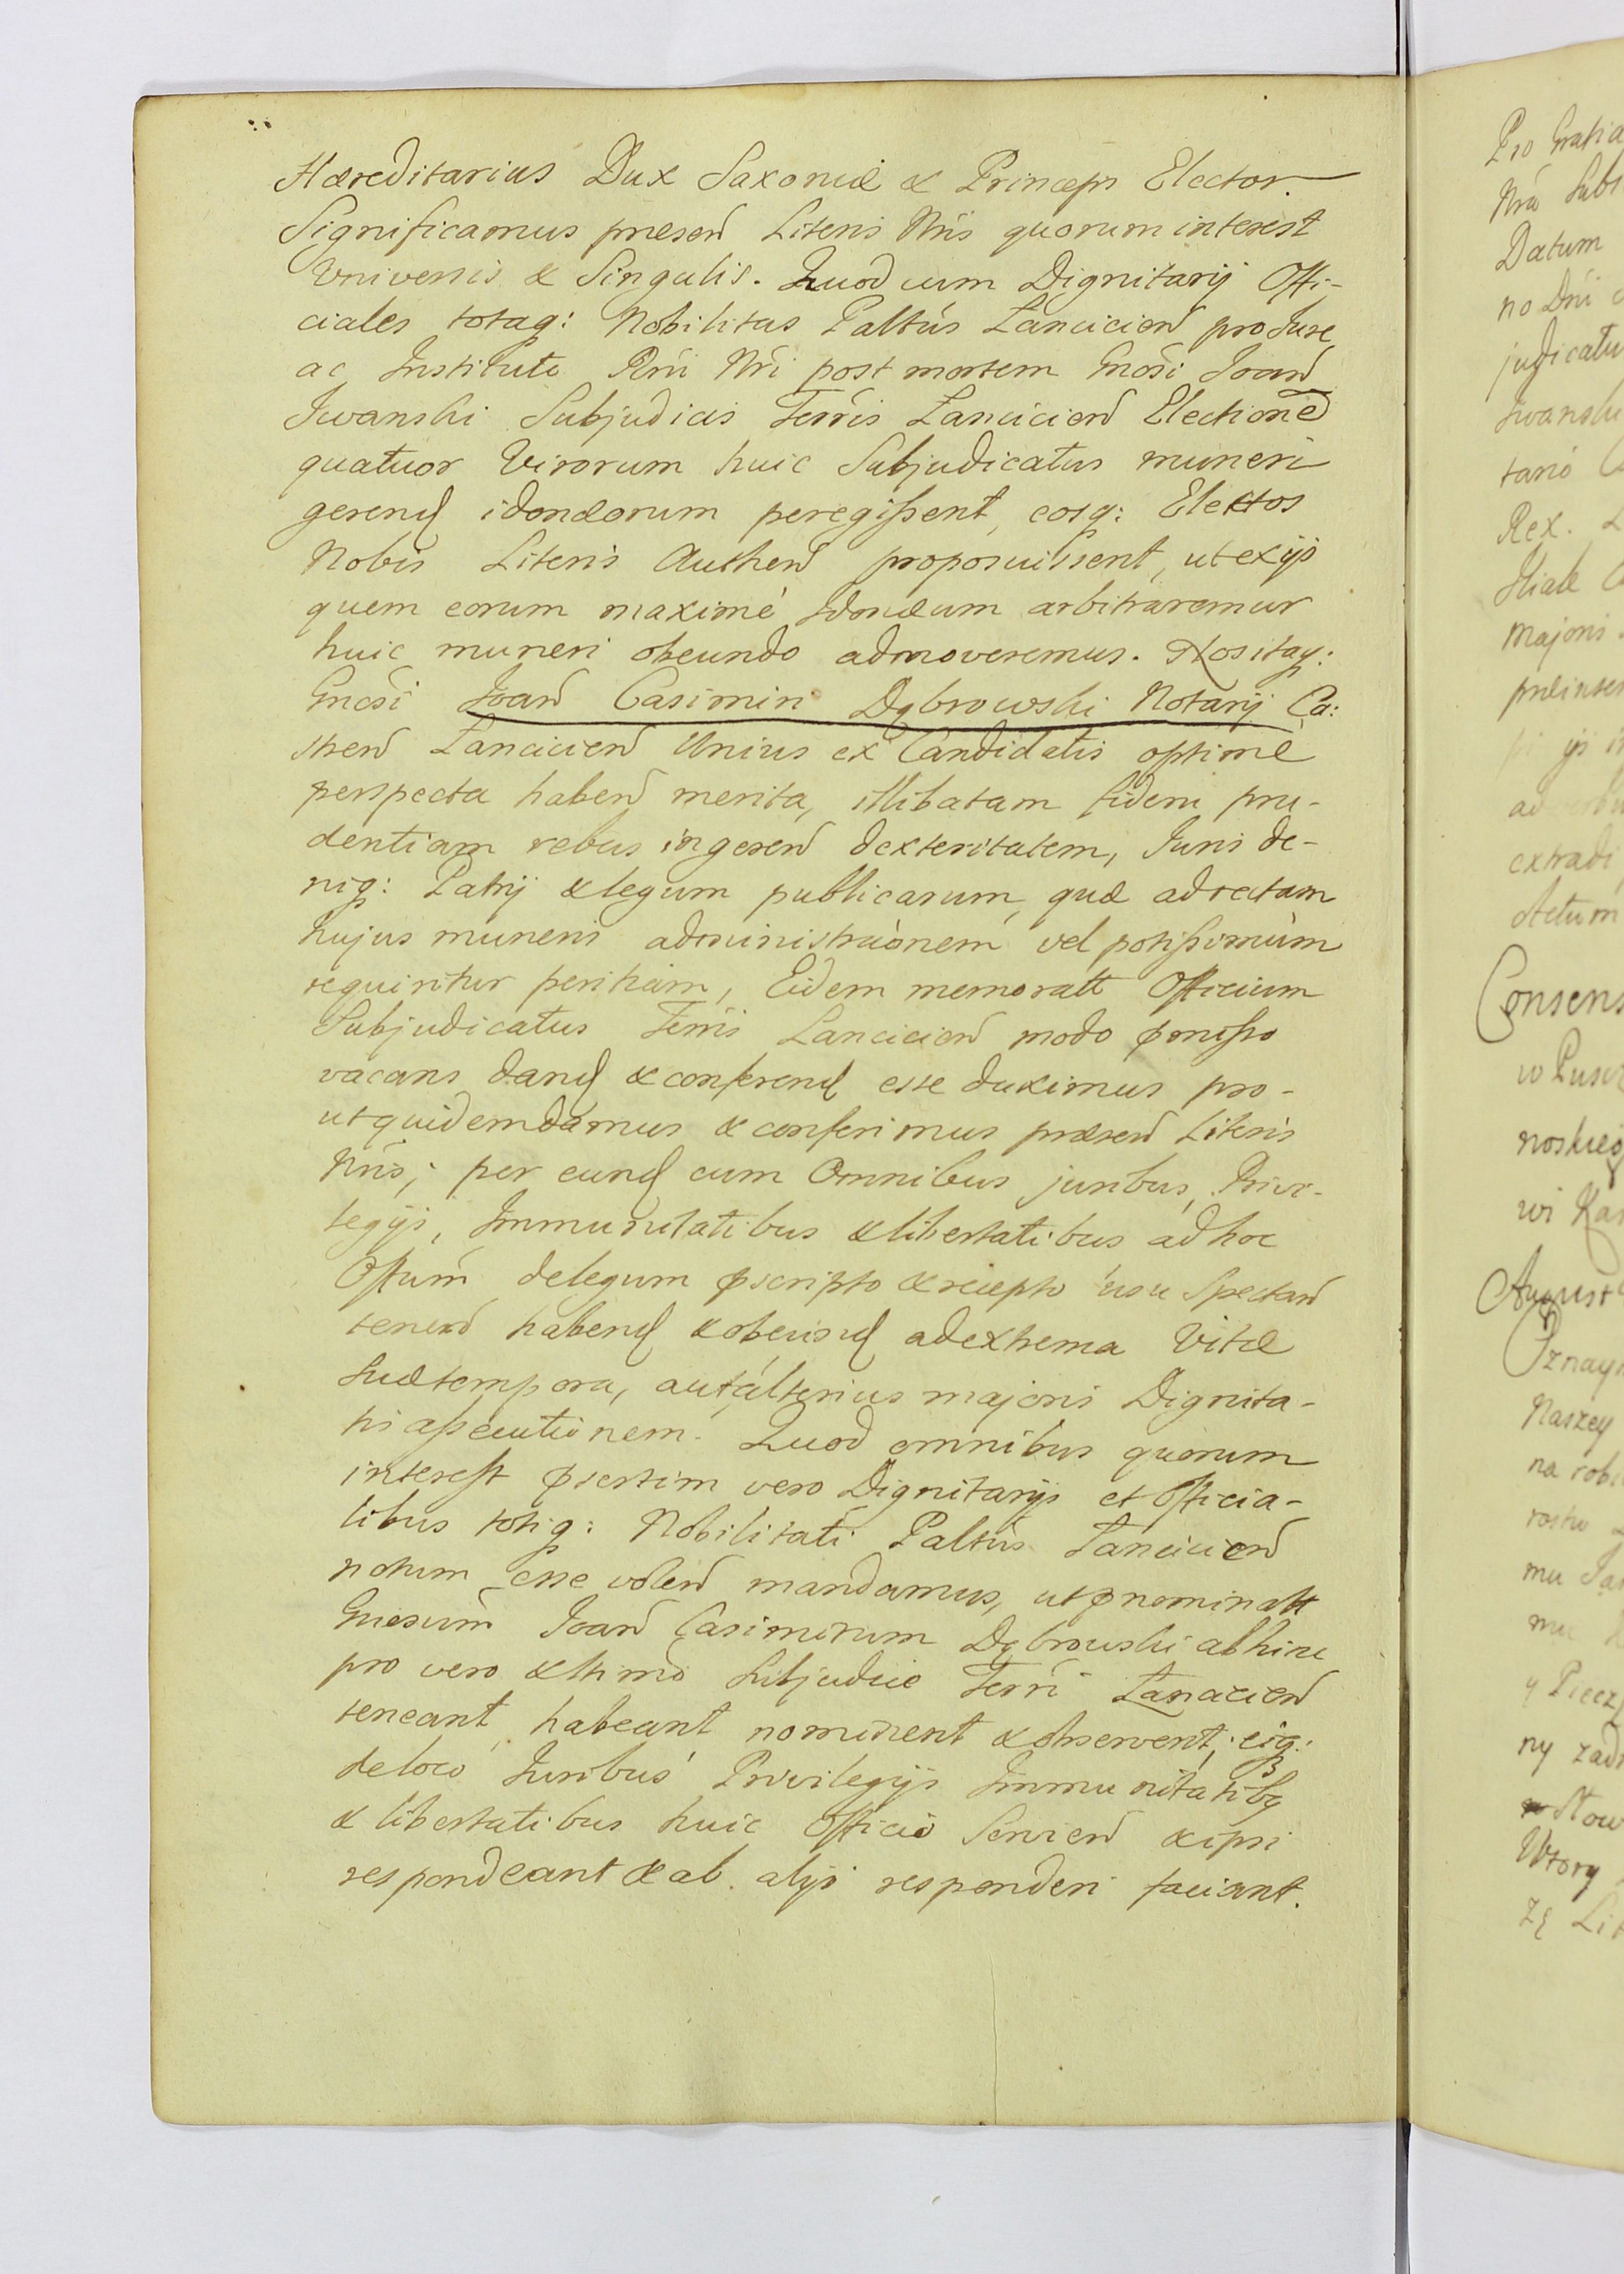 Hæreditarius Dux Saxoniæ & Princeps Elector.
Significamus præsen Literis Nris quorum interest
Universis & Singulis. Quod cum Dignitarij Offi-
ciales totaq: Nobilitas Palttus Lancicien pro Jure
ac Instituto Rni Nri post mortem Gnosi Joan
Iwanski Subjudicis Terris Lancicien Electione
quatuor Virorum huic Subjudicatus muneri
gerend idonæorum peregissent, eosq: Electos
Nobis Literis Authen proposuissent, ut ex ijs
quem eorum maximè Idonæum arbitraremur
huic muneri obeundo admoveremus. Nos itaq:
Gnosi Joan Casimiri Dąbrowski Notarij Ca:
stren Lancicien Unius ex Candidatis optimè
perspecta haben merita, illibatam fidem pru-
dentiam rebus in geren dexteritatem, Juris de-
niq: Patrij & legum publicarum, quæ ad rectam
hujus muneris administraonem vel potissimùm
requiritur peritiam, Eidem memoratt Officium
Subjudicatus Terris Lancicien modo pmisso
vacans dand & conferend esse duximus pro-
ut quidem damus & conferimus præsen Literis
Nris, per eund cum Omnibus juribus, Privi-
legijs, Immunitatibus & libertatibus ad hoc
Offum de legum pscripto & recepto usu Spectan
tenen habend & obeund ad extrema Vitæ
suæ tempora, aut alterius majoris Dignita-
tis assecutionem. Quod omnibus quorum
interest psertim vero Dignitarijs et Officia-
libus totiq: Nobilitati Palttus Lancicien
notum esse volen mandamus, ut pnominatt
Gnosum Joan Casimirum Dąbrowski abhinc
pro vero & ltimo Subjudice Terri Lancicien
teneant, habeant nominent & observent, eiq:
de loco Juribus Privilegijs Immunitatibq
& libertatibus huic Officio Servien & ipsi
respondeant & ab alijs responderi faciant.
Datum
Rex.
Majoris
Actum
Consens
Naszey